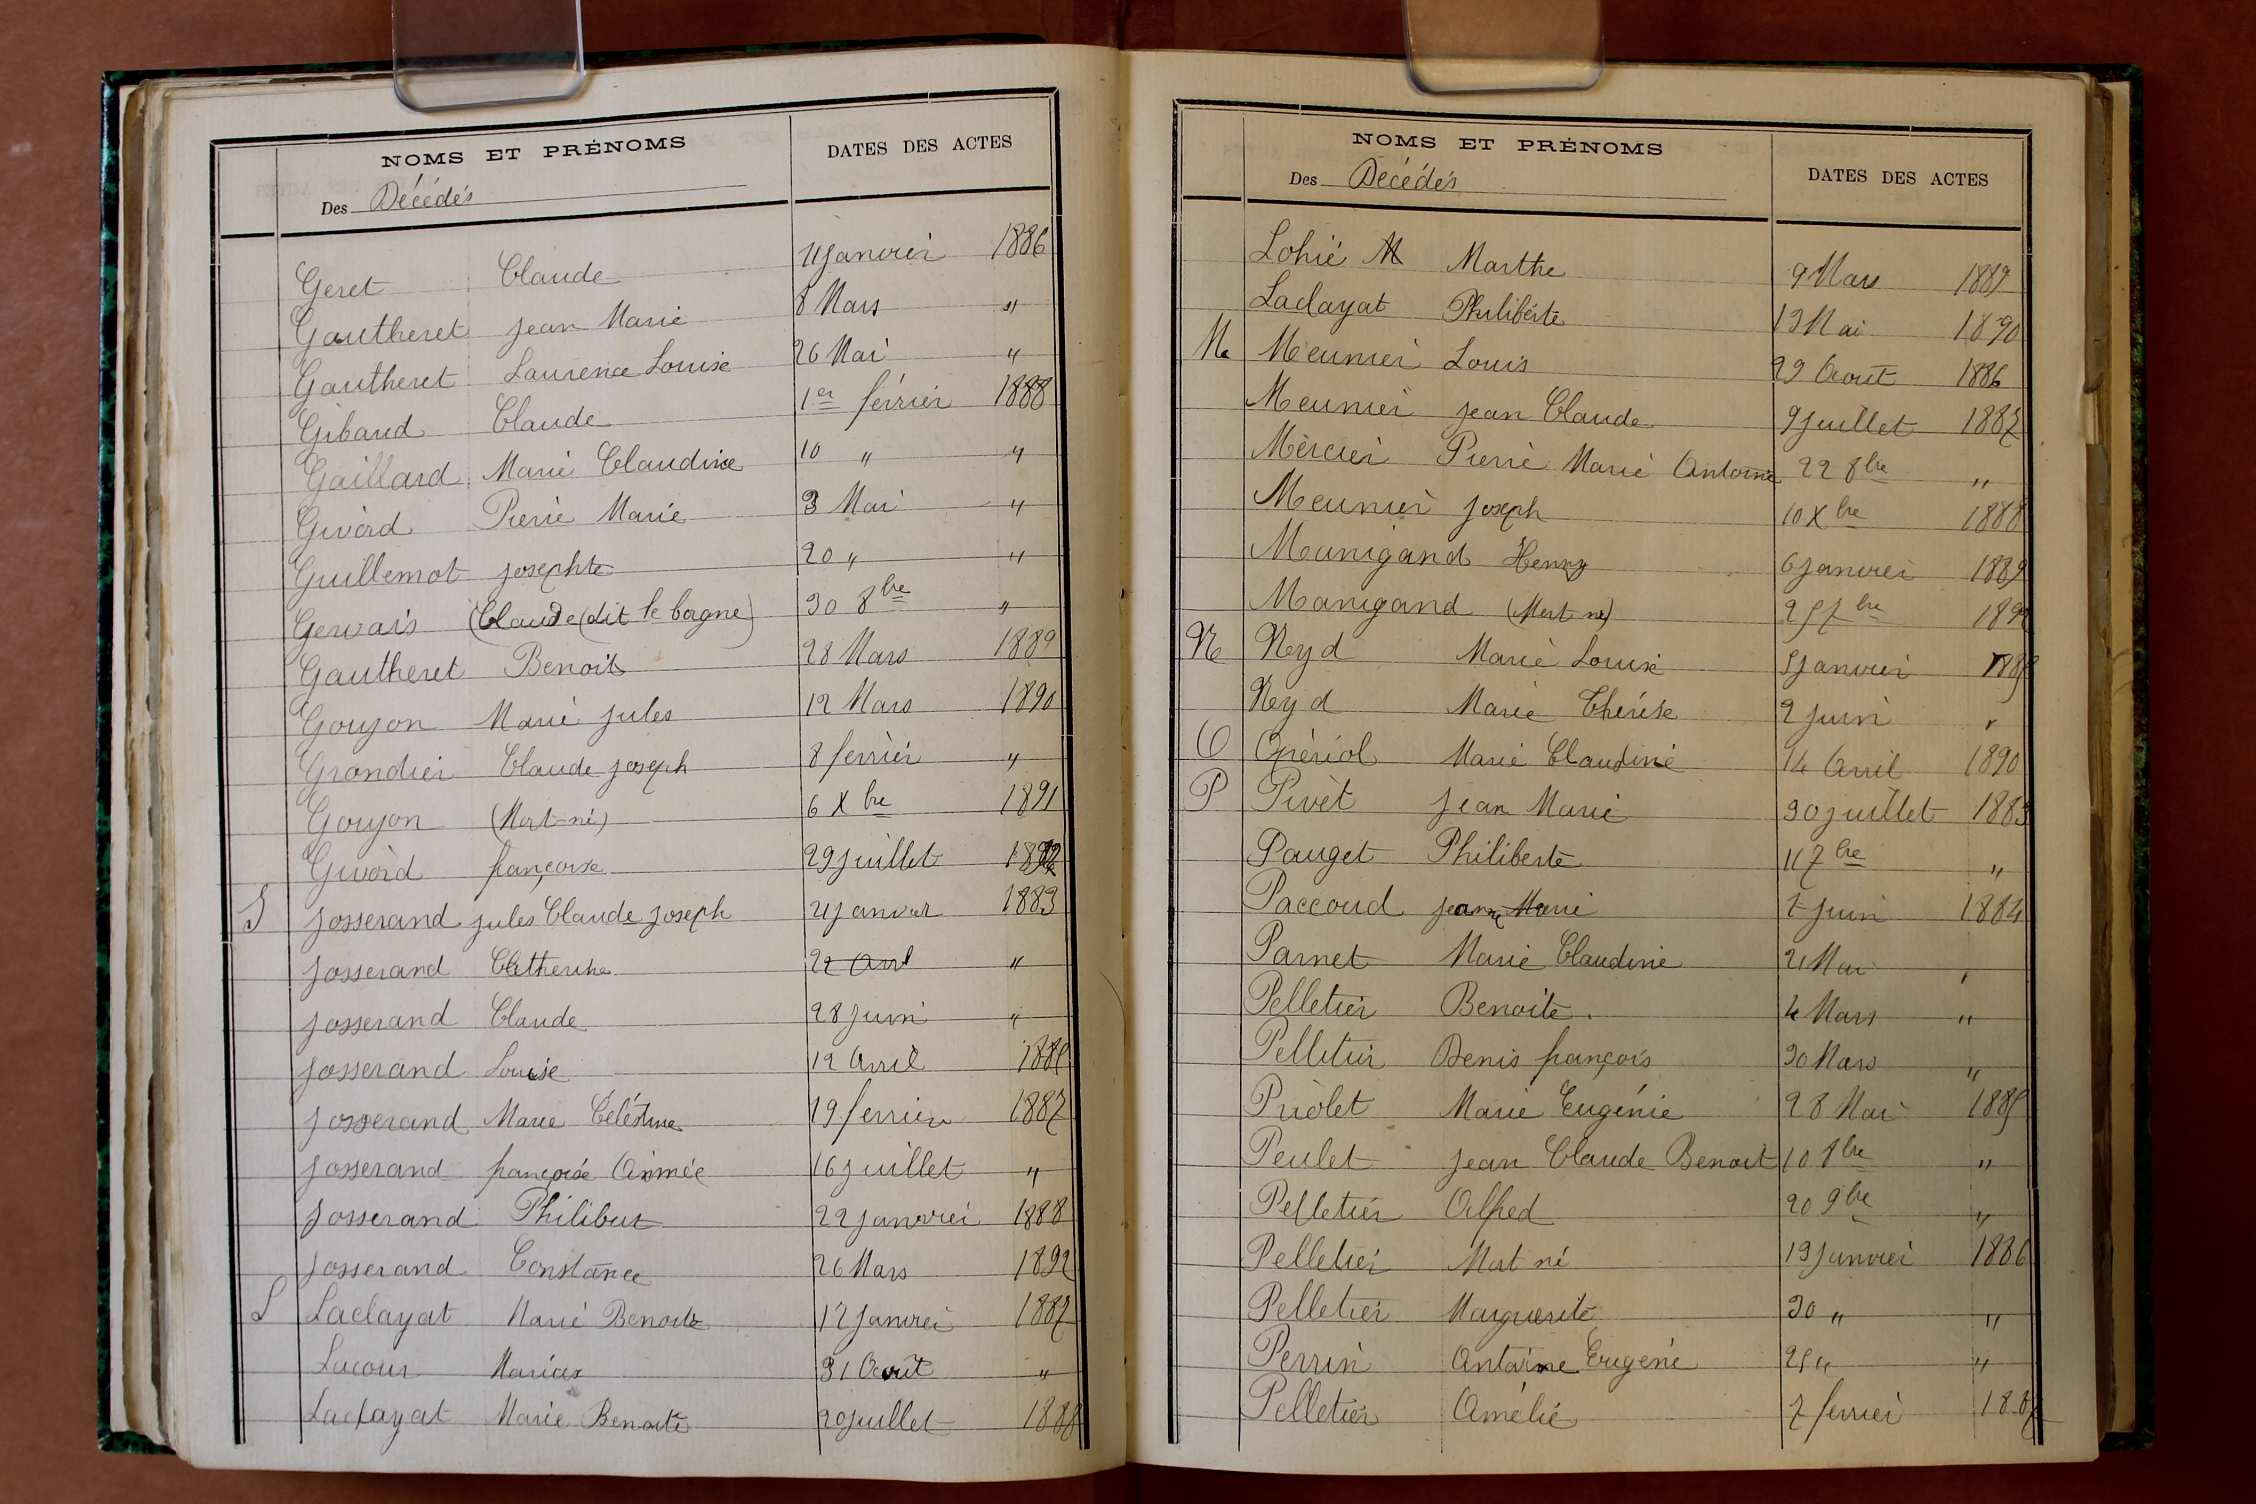 NOMS ET PRÉNOMS DATES DES ACTES
Des Décédés
Geret Claude 21 janvier 1886
Gautheret Jean Marie 8 Mars "
Gautheret Laurence Louise 26 Mai "
Gibaud Claude 1er février 1888
Gaillard Marie Claudine 10 " "
Givord Pierre Marie 3 Mai "
Guillemot Josephte 20 " "
Gervais (Claude (dit le borgne) 30 8bre "
Gautheret Benoit 28 Mars 1889
Goujon Marie Jules 12 Mars 1890
Grandier Claude Joseph 8 fevrier "
Goujon (Mort-né) 6 Xbre 1891
Givord françoise 29 juillet 1892
J Josserand Jules Claude Joseph 21 janvier 1883
Josserand Catherine 22 Avril "
Josserand Claude 28 Juin "
Josserand Louise 12 Avril
Josserand Marie Celéstine 19 fevrier 1887
Josserand françoise Aimée 16 juillet "
Josserand Philibert 22 janvier 1888
Josserand Constance 26 Mars 1892
L Laclayat Marie Benoite 12 Janvier 1887
Lacour Marius 31 Août "
Laclayat Marie Benoite 20 juillet 1888
NOMS ET PRÉNOMS DATES DES ACTES
Des Décédés
Lohié M Marthe 9 Mars 1889
Laclayat Philiberte 13 Mai 1890
M Meunier Louis 29 Aout 1886
Meunier Jean Claude 9 Juillet 1887
Mercier Pierre Marie Antoine 22 8bre "
Meunier Joseph 10 Xbre 1888
Manigand Henry 6 janvier 1889
Manigand (Mort né) 25 7bre
N Neyd Marie Louise 5 Janvier 1885
Neyd Marie Thérése 2 Juin "
O Opériol Marie Claudine 14 Avril 1890
P Pivèt Jean Marie 30 juillet 1883
Pauget Philiberte 11 7bre "
Paccoud Jeanne Marie Juin 1884
Parnet Marie Claudine 21 Mai "
Pelletier Benoite. 4 Mars "
Pelletier Denis françois 30 Mars "
Priolet Marie Eugénie 28 Mai 1885
Peulet Jean Claude Benoit 10 8bre "
Pelletier Alfred 20 9bre "
Pelletier Mort né 13 Janvier 1886
Pelletier Marguerite 30 " "
Perrin Antoine Eugene 25 " "
Pelletier Amélie 7 fevrier 1887